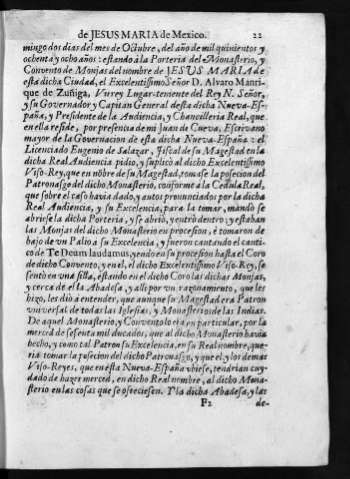 de JESUS MARIA de Mexico. 22
mingo dos dias del mes de Octubre, del año de mil quinientos y
ochenta y ocho años: estando à la Porteria del Monasterio, y
Convento de Monjas del nombre de JESUS MARIA de
esta dicha Ciudad, el Excelentissimo Señor D. Alvaro Manri-
que de Zuñiga, Virrey Lugar-teniente del Rey N. Señor,
y su Governador y Capitan General desta dicha Nueva-Es-
paña, y Presidente de la Audiencia, y Chancilleria Real, que
en ella reside, por presencia de mi Juan de Cueva, Escrivano
mayor de la Governacion de esta dicha Nueva-España: el
Licenciado Eugenio de Salazar, Fiscal de su Magestad en la
dicha Real Audiencia pidio, y suplicò al dicho Excelentissimo
Viso-Rey, que en nõbre de su Magestad, tomase la posecion del
Patronasgo del dicho Monasterio, conforme à la Cedula Real,
que sobre el caso havia dado, y autos pronunciados por la dicha
Real Audiencia, y su Excelencia, para la tomar, mandò se
abriese la dicha Porteria, y se abriò, y entrò dentro; y estaban
las Monjas del dicho Monasterio en procesion, è tomaron de
bajo de vn Palio a su Excelencia, y fueron cantando el canti-
co de Te Deum laudamus, yendo en su procesion hasta el Coro
de dicho Convento, y en èl, el dicho Excelentissimo Viso-Rey, se
sentò en vna silla, estando en el dicho Coro las dichas Monjas,
y cerca de el la Abadesa, y alli por vn razonamiento, que les
hizo, les diò à entender, que aunque su Magestad era Patron
vniversal de todas las Iglesias, y Monasterios de las Indias.
De aquel Monasterio, y Convento lo era en particular, por la
merced de sesenta mil ducados, que al dicho Monasterio havia
hecho, y como tal Patron su Excelencia, en su Real nombre, que-
ria tomar la posecion del dicho Patronasgo, y que el, y los demas
Viso-Reyes, que en esta Nueva-España vbiese, tendrian cuy-
dado de hazer merced, en dicho Real nombre, al dicho Mona-
sterio en las cosas que se ofreciesen. Y la dicha Abadesa, y las
F2 de-